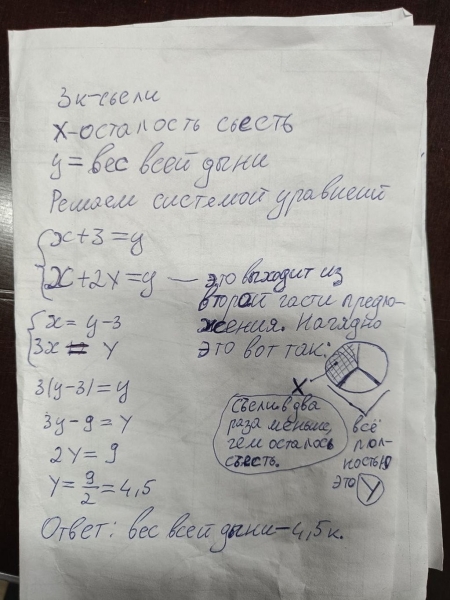 3к-сьели
х-осталость сьесть
у = вес всей дыни
Решаем системой уравнений
{х+3=у
{х+2х=у — это выходит из
второй части предло-
жения. Наглядно
это вот так:
{х = у-3
3х = у
3(у-3)=у
х
3у-9=у
2у = 9
у = 9/2 = 4,5
Сьели в два
раза меньше,
чем осталось
сьесть.
всё
пол-
ностью
это у
Ответ: вес всей дыни-4,5к.